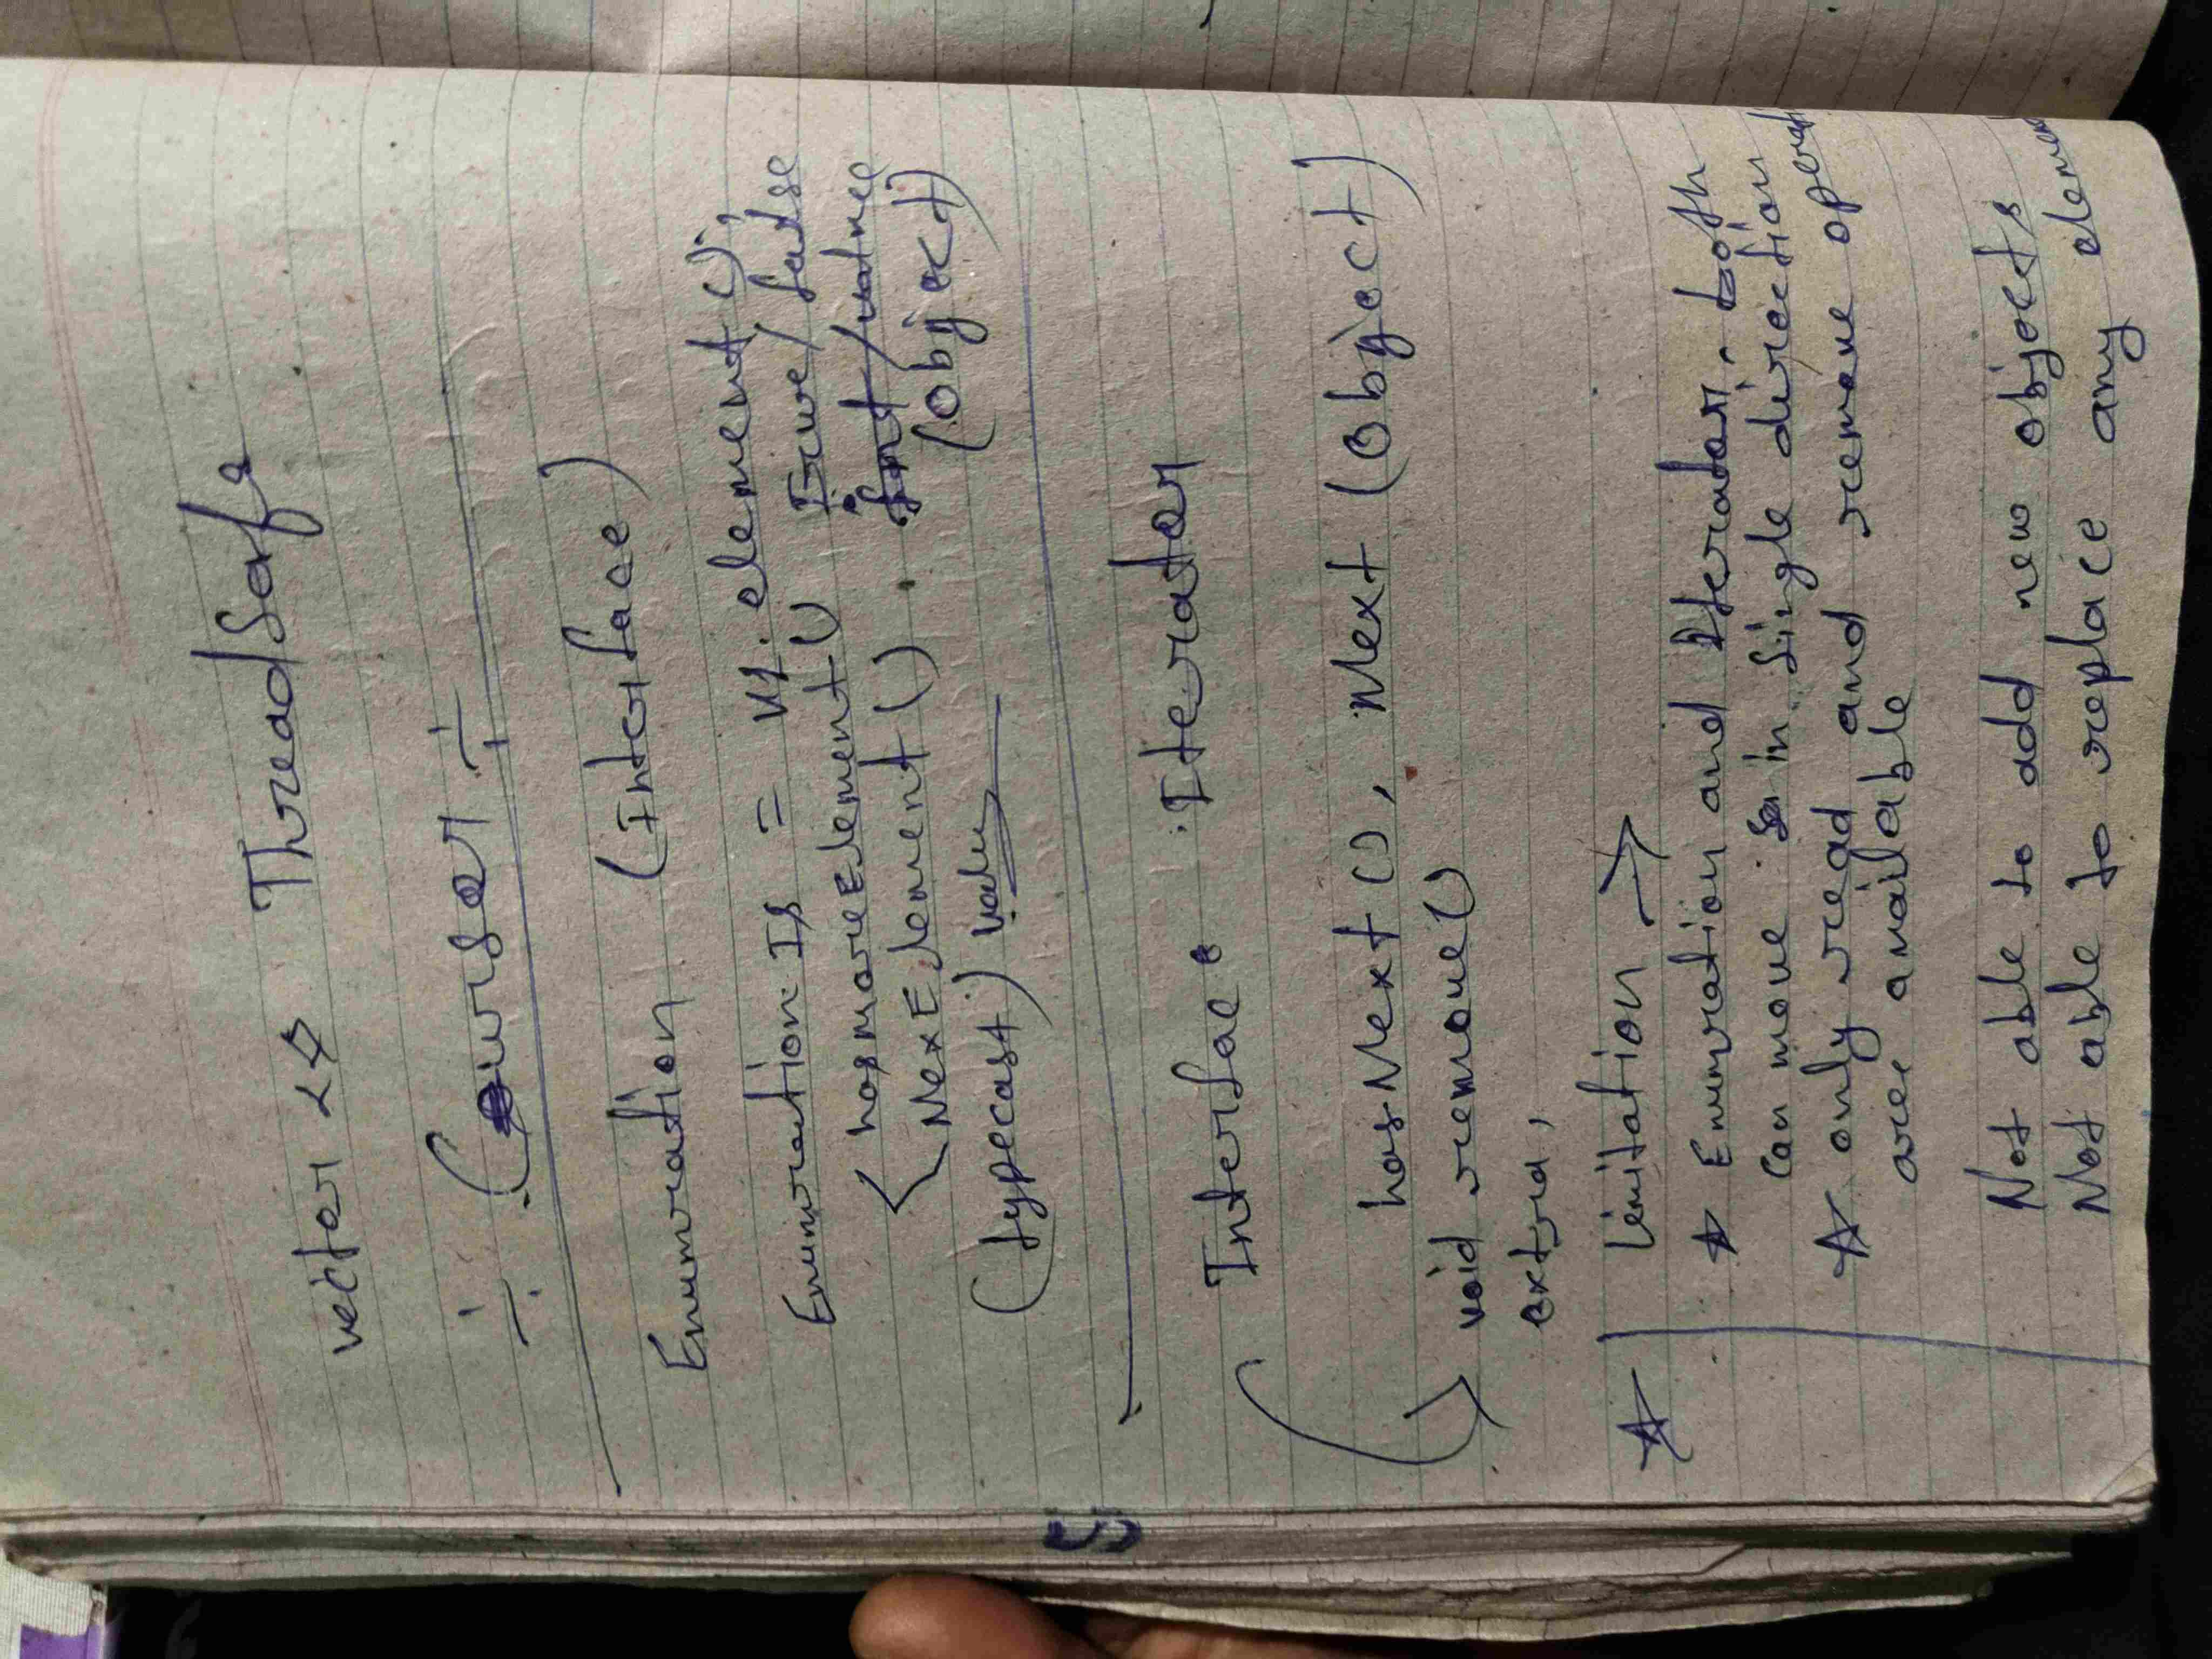 vector <> ThreadSafe
÷ Cursor ÷
Enumration (Interface)
Enumration Is = v1.element();
hasmoreElement() True/false
NexElement(). Int/value
(Object)
(typecast) value
Interface Iterator
hasNext(), Next (Object)
void remove()
extra,
limitation →
☆ Enumration and Iterator, both
can move in Single direction
☆ only read and remove operati
are available
Not able to add new objects
Not able to replace any elemen